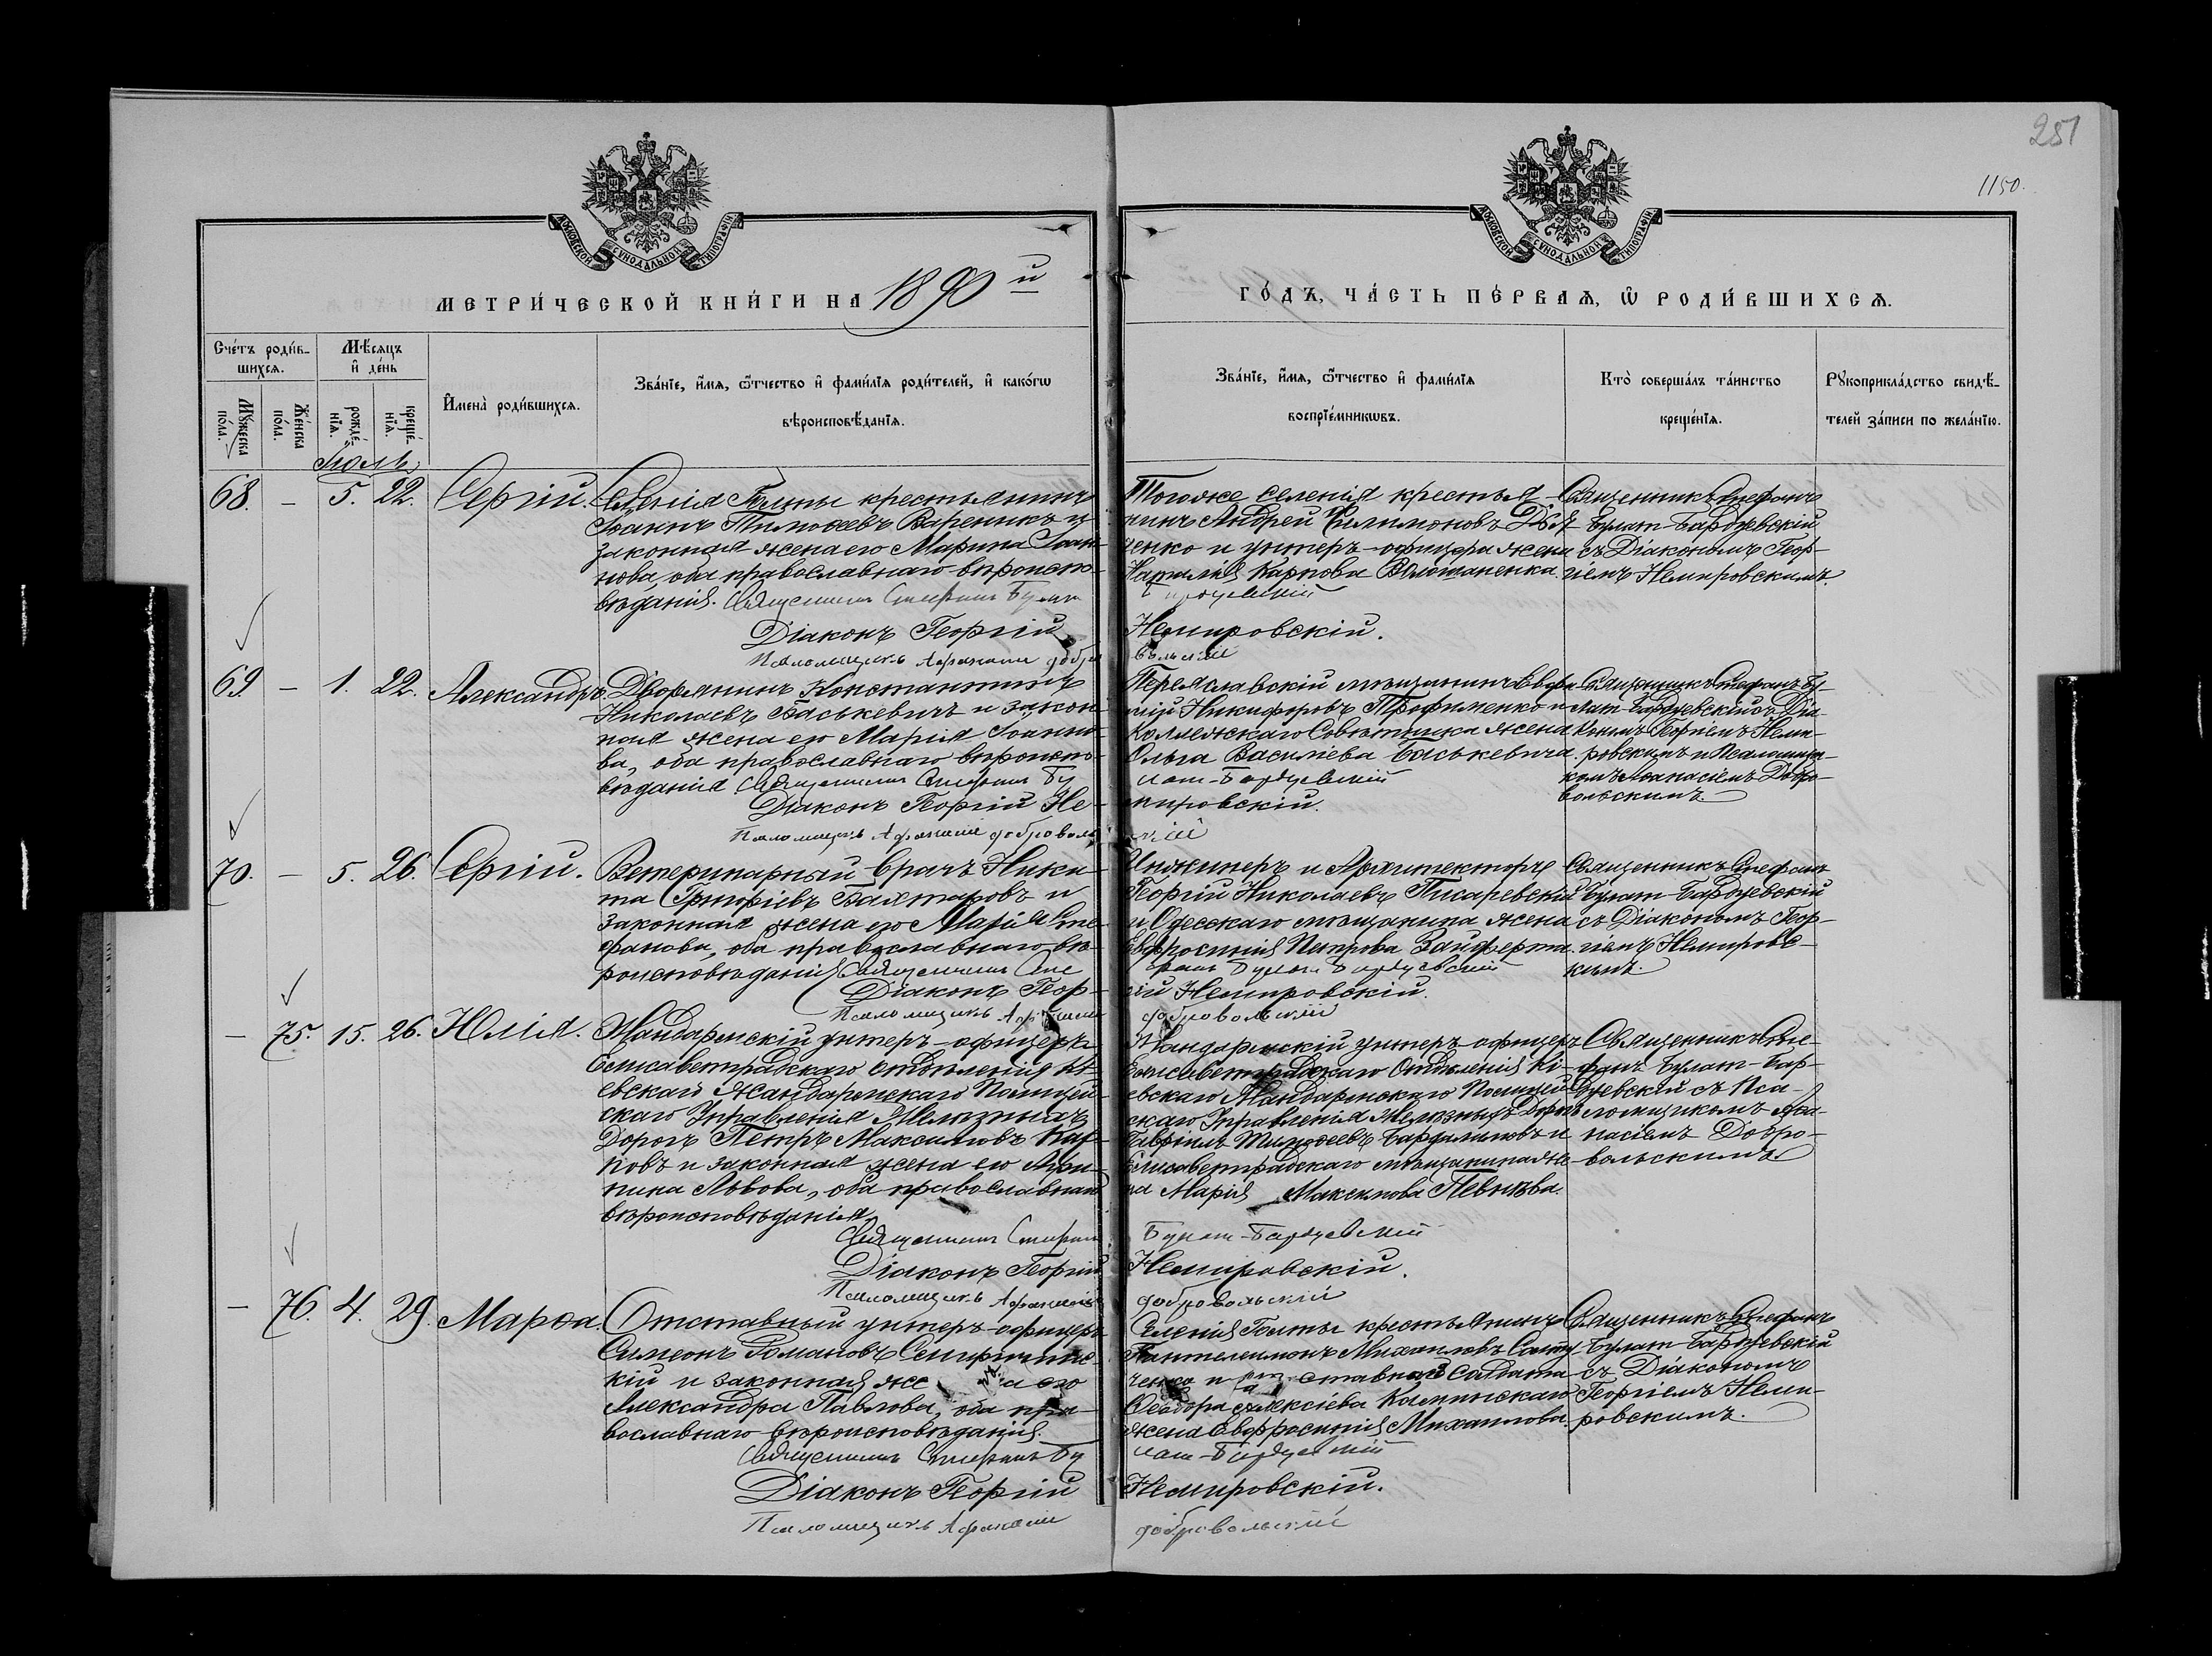 251
1150.
МОСКОВСКОЙ СУНОДАЛЬНОЙ ТИПОГРАФІИ
МОСКОВСКОЙ СУНОДАЛЬНОЙ ТИПОГРАФІИ
МЕТРИ́ЧЕСКОЙ КНИ́ГИ НА 1890 й
ГО́ДЪ, ЧА́СТЬ ПЕ́РВАѦ, Ѡ҆ РОДИ́ВШИХСѦ.
Сче́тъ роди́в-
шихсѧ.
Мѣ́сѧцъ
и҆ де́нь
Мꙋ́жеска
по́ла.
Же́нска
по́ла.
рожде́-
нїѧ.
креще́-
нїѧ.
И҆мена̀ роди́вшихсѧ.
Зва́нїе, и҆́мѧ, ѻ҆́тчество и҆ фами́лїѧ роди́телей, и҆ како́гѡ
вѣроисповѣ́данїѧ.
Зва́нїе, и҆́мѧ, ѻ҆́тчество и҆ фами́лїѧ
воспрїе́мникѡвъ.
Кто̀ соверша́лъ та́инство
креще́нїѧ.
Рꙋкоприкла́дство свидѣ́-
телей за́писи по жела́нїю.
Іюль
68. – 5. 22. Сергій.
Селенія Голты крестьянинъ
Іоаннъ Тимоѳеевъ Вареникъ и
законная жена его Марина Іоан-
нова, оба православнаго вѣроиспо-
вѣданія. Священникъ Стефанъ Булат
Діаконъ Георгій
Псаломщикъ Афанасій добро
Тогоже селенія крестья-
нинъ Андрей Филимоновъ Дья-
ченко и унтеръ-офицера жена
Наталія Карпова
Бардуевскій
Немировскій.
вольскій
Священникъ Стефанъ
Булат-Бардуевскій
съ Діакономъ Геор-
гіемъ Немировскимъ.
69 – 1. 22. Александръ.
Дворянинъ Константинъ
Николаевъ Баськевичъ и закон-
ная жена его Марія Іоанно-
ва, оба православнаго вѣроиспо-
вѣданія Священникъ Стефанъ Бу
Діаконъ Георгій Не-
Псаломщикъ Афанасій доброволь
Переяславскій мѣщанинъ Евфи-
мій Никифоровъ Трофименко и
Коллежскаго Совѣтника жена
Ольга Василіева Баськевича.
лат-Бардуевскій
мировскій.
скій
Священникъ Стефанъ Бу-
лат-Бардуевскій съ Діа-
кономъ Георгіемъ Неми-
ровскимъ и Псаломщи-
комъ Аѳанасіемъ Добро-
вольскимъ.
70. – 5. 26. Сергій.
Ветеринарный врачъ Ники-
та Григоріевъ Бахтаровъ и
законная жена его Марія Сте-
фанова, оба православнаго вѣ-
роисповѣданія Священникъ Сте
Діаконъ Геор-
Псаломщикъ Афанасій
Инженеръ и Архитекторъ
Георгій Николаевъ Писаревскій
и Одесскаго мѣщанина жена
Евфросинія Петрова Зайферта.
фанъ Булат Бардуевскій
гій Немировскій.
добровольскій
Священникъ Стефанъ
Булат-Бардуевскій
съ Діакономъ Геор-
гіемъ Немировс-
кимъ.
– 75. 15. 26. Юлія.
Жандармскій унтеръ-офицеръ
Елисаветградскаго отдѣленія Кі-
евскаго Жандармскаго Полицей-
скаго Управленія Желѣзныхъ
Дорогъ Петръ Максимовъ Кар-
повъ и законная жена его Ири-
пика Львова, оба православнаго
вѣроисповѣданія.
Священникъ Стефанъ
Діаконъ Георгій
Псаломщикъ Афанасій
Жандармскій унтеръ-офицеръ
Елисаветградскаго Отдѣленія Кі-
евскаго Жандармскаго Полицей-
скаго Управленія Желѣзныхъ Дорогъ
Гавріилъ Тимоѳеевъ и
Елисаветградскаго мѣщанина же-
на Марія Максимова Певнева.
Булат-Бардуевскій
Немировскій.
добровольскій
Священникъ Сте-
фанъ Булат-Бар-
дуевскій съ Пса-
ломщикомъ Аѳа-
насіемъ Добро-
вольскимъ
– 76. 4. 29. Марѳа.
Отставный унтеръ-офицеръ
Симеонъ Романовъ
кій и законная жена его
Александра Павлова, оба пра-
вославнаго вѣроисповѣданія.
Священникъ Стефанъ Бу
Діаконъ Георгій
Псаломщикъ Афанасій
Селенія Голты крестьянинъ
Пантелеимонъ Михаиловъ
ченко и отставнаго Солдата
Ѳеодора Алексіева
жена Евфросинія Михаилова.
лат-Бардуевскій
Немировскій.
добровольскій
Священникъ Стефанъ
Булат-Бардуевскій
съ Діакономъ
Георгіемъ Неми-
ровскимъ.